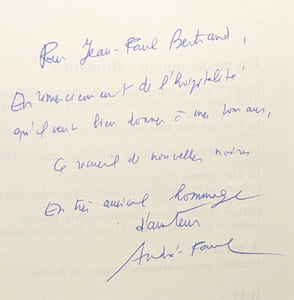 Pour Jean-Paul Bertrand,
En remerciement de l'hospitalité
qu'il veut bien donner à mes romans,
Ce recueil de nouvelles noires
En très amical hommage
d'auteur
André Faul